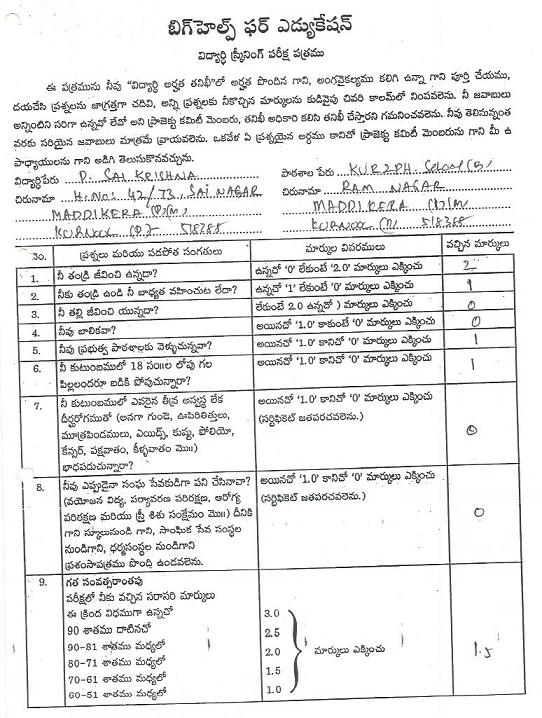 బిగ్‌హెల్ప్ ఫర్ ఎడ్యుకేషన్
విద్యార్థి స్క్రీనింగ్ పరీక్ష పత్రము
ఈ పత్రమును నీవు "విద్యార్థి అర్హత తనిఖీ"లో అర్హత పొందిన గాని, అంగవైకల్యము కలిగి ఉన్నా గాని పూర్తి చేయము,
దయచేసి ప్రశ్నలను జాగ్రత్తగా చదివి, అన్ని ప్రశ్నలకు నీకొచ్చిన మార్కులను కుడివైపు చివరి కాలమ్‌లో నింపవలెను. నీ జవాబులు
అన్నింటిని సరిగా ఉన్నవో లేవో అని ప్రాజెక్టు కమిటీ మెంబరు, తనిఖీ అధికారి కలిసి తనిఖీ చేస్తారని గమనించవలెను. నీవు తెలిసున్నంత
వరకు సరియైన జవాబులు మాత్రమే వ్రాయవలెను. ఒకవేళ ఏ ప్రశ్నయైన అర్థము కానిచో ప్రాజెక్ట్ కమిటీ మెంబరును గాని మీ ఉ
పాధ్యాయులను గాని అడిగి తెలుసుకొనవచ్చును.
విద్యార్థిపేరు P. SAI KRISHNA పాఠశాల పేరు
చిరునామా H.No: 42/73, SAI NAGAR చిరునామా RAM NAGAR
MADDIKERA (P)(M) MADDIKERA
KURNOOL (D) 518388 KURNOOL (D) 518388
నెం. ప్రశ్నలు మరియు పడపోత సంగతులు మార్కుల వివరములు వచ్చిన మార్కులు
1. నీ తండ్రి జీవించి ఉన్నదా? ఉన్నచో '0' లేకుంటే '2.0' మార్కులు ఎక్కించు 2
2. నీకు తండ్రి ఉండి నీ బాధ్యత వహించుట లేదా? ఉన్నచో '1' లేకుంటే '0' మార్కులు ఎక్కించు 1
3. నీ తల్లి జీవించి యున్నదా? లేకుంటే 2.0 ఉన్నచో ) మార్కులు ఎక్కించు 0
4. నీవు బాలికవా? అయినచో '1.0' కాకుంటే '0' మార్కులు ఎక్కించు 0
5. నీవు ప్రభుత్వ పాఠశాలకు వెళ్ళుచున్నవా? అయినచో '1.0' కానిచో '0' మార్కులు ఎక్కించు 1
6. నీ కుటుంబములో 18 సం॥ల లోపు గల అయినచో '1.0' కానిచో '0' మార్కులు ఎక్కించు 1
పిల్లలందరూ బడికి పోవుచున్నారా?
7. నీ కుటుంబములో ఎవరైన తీవ్ర అస్వస్థ లేక అయినచో '1.0' కానిచో '0' మార్కులు ఎక్కించు
దీర్ఘరోగముతో (అనగా గుండె, ఊపిరితిత్తులు, (సర్టిఫికెట్ జతపరచవలెను.)
మూత్రపిండములు, ఎయిడ్స్, కుష్టు, పోలియో, 0
కేన్సర్, పక్షవాతం, కీళ్ళవాతం మొ॥)
భాధపడుచున్నారా?
8. నీవు ఎప్పుడైనా సంఘ సేవకుడిగా పని చేసినావా? అయినచో '1.0' కానిచో '0' మార్కులు ఎక్కించు
(వయోజన విద్య, పర్యావరణ పరిరక్షణ, ఆరోగ్య (సర్టిఫికెట్ జతపరచవలెను.)
పరిరక్షణ మరియు స్త్రీ శిశు సంక్షేమం మొ॥) దీనికి 0
గాని స్కూలునుండి గాని, సాంఘిక సేవ సంస్థల
నుండిగాని, ధర్మసంస్థల నుండిగాని
ప్రశంసాపత్రము పొంది ఉండవలెను.
9. గత సంవత్సరాంతపు
పరీక్షలో నీకు వచ్చిన సరాసరి మార్కులు
ఈ క్రింద విధముగా ఉన్నచో
90 శాతము దాటినచో 3.0
90-81 శాతము మధ్యలో 2.5
80-71 శాతము మధ్యలో 2.0 మార్కులు ఎక్కించు 1.5
70-61 శాతము మధ్యలో 1.5
60-51 శాతము మధ్యలో 1.0